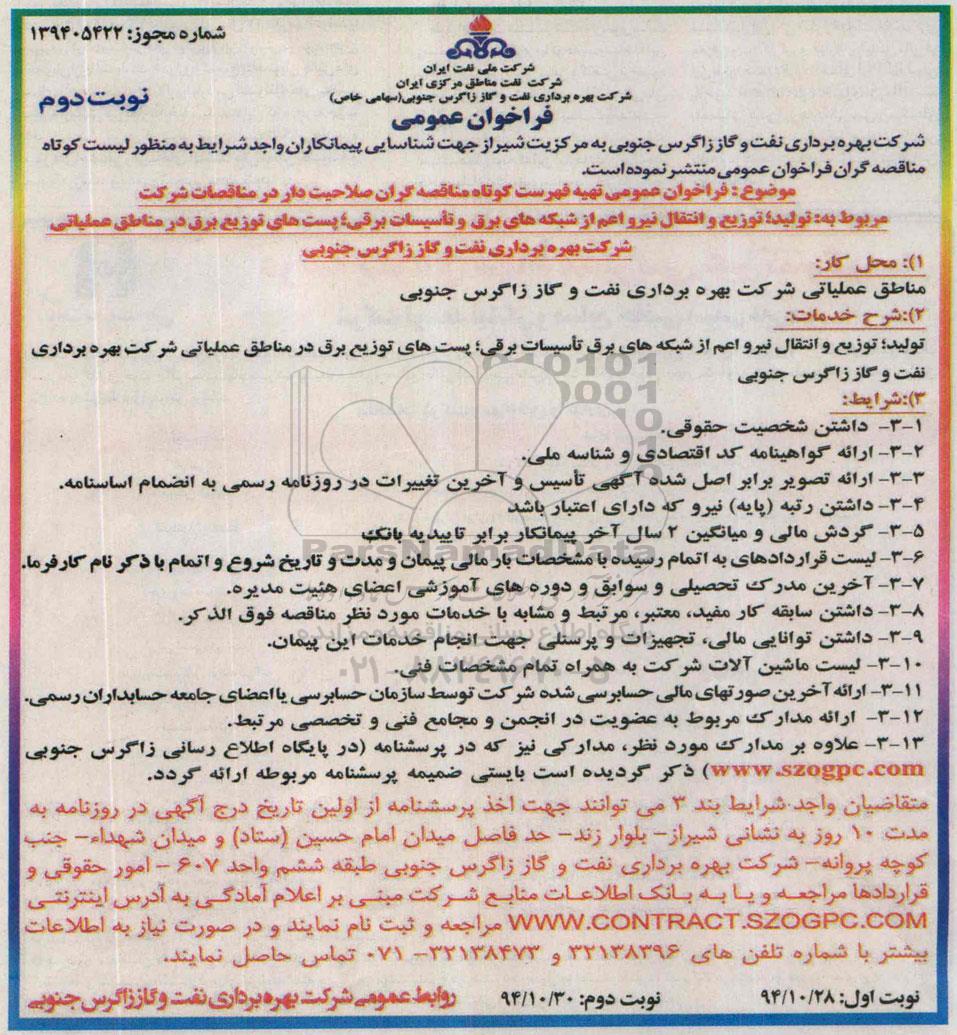 شماره مجوز: ۱۳۹۴۰۵۴۲۲
شرکت ملی نفت ایران
شرکت نفت مناطق مرکزی ایران
شرکت بهره برداری نفت و گاز زاگرس جنوبی(سهامی خاص)
نوبت دوم
فراخوان عمومی
شرکت بهره برداری نفت و گاز زاگرس جنوبی به مرکزیت شیراز جهت شناسایی پیمانکاران واجد شرایط به منظور لیست کوتاه
مناقصه گران فراخوان عمومی منتشر نموده است.
موضوع: فراخوان عمومی تهیه فهرست کوتاه مناقصه گران صلاحیت دار در مناقصات شرکت
مربوط به: تولید؛ توزیع و انتقال نیرو اعم از شبکه های برق و تأسیسات برقی؛ پست های توزیع برق در مناطق عملیاتی
شرکت بهره برداری نفت و گاز زاگرس جنوبی
۱): محل کار:
مناطق عملیاتی شرکت بهره برداری نفت و گاز زاگرس جنوبی
۲):شرح خدمات:
تولید؛ توزیع و انتقال نیرو اعم از شبکه های برق تأسیسات برقی؛ پست های توزیع برق در مناطق عملیاتی شرکت بهره برداری
نفت و گاز زاگرس جنوبی
۳):شرایط:
۳-۱- داشتن شخصیت حقوقی.
۳-۲- ارائه گواهینامه کد اقتصادی و شناسه ملی.
۳-۳- ارائه تصویر برابر اصل شده آگهی تأسیس و آخرین تغییرات در روزنامه رسمی به انضمام اساسنامه.
۳-۴- داشتن رتبه (پایه) نیرو که دارای اعتبار باشد
۳-۵- گردش مالی و میانگین ۲ سال آخر پیمانکار برابر تاییدیه بانک
۳-۶- لیست قراردادهای به اتمام رسیده با مشخصات بار مالی پیمان و مدت و تاریخ شروع و اتمام با ذکر نام کارفرما.
۳-۷- آخرین مدرک تحصیلی و سوابق و دوره های آموزشی اعضای هئیت مدیره.
۳-۸- داشتن سابقه کار مفید، معتبر، مرتبط و مشابه با خدمات مورد نظر مناقصه فوق الذکر.
۳-۹- داشتن توانایی مالی، تجهیزات و پرسنلی جهت انجام خدمات این پیمان.
۳-۱۰- لیست ماشین آلات شرکت به همراه تمام مشخصات فنی.
۳-۱۱- ارائه آخرین صورتهای مالی حسابرسی شده شرکت توسط سازمان حسابرسی یا اعضای جامعه حسابداران رسمی.
۳-۱۲- ارائه مدارک مربوط به عضویت در انجمن و مجامع فنی و تخصصی مرتبط.
۳-۱۳- علاوه بر مدارک مورد نظر، مدارکی نیز که در پرسشنامه (در پایگاه اطلاع رسانی زاگرس جنوبی
www.szogpc.com) ذکر گردیده است بایستی ضمیمه پرسشنامه مربوطه ارائه گردد.
متقاضیان واجد شرایط بند ۳ می توانند جهت اخذ پرسشنامه از اولین تاریخ درج آگهی در روزنامه به
مدت ۱۰ روز به نشانی شیراز- بلوار زند- حد فاصل میدان امام حسین (ستاد) و میدان شهداء- جنب
کوچه پروانه- شرکت بهره برداری نفت و گاز زاگرس جنوبی طبقه ششم واحد ۶۰۷ - امور حقوقی و
قراردادها مراجعه و یا به بانک اطلاعات منابع شرکت مبنی بر اعلام آمادگی به آدرس اینترنتی
WWW.CONTRACT.SZOGPC.COM مراجعه و ثبت نام نمایند و در صورت نیاز به اطلاعات
بیشتر با شماره تلفن های ۳۲۱۳۸۳۹۶ و ۳۲۱۳۸۴۷۳- ۰۷۱ تماس حاصل نمایند.
نوبت اول: ۹۴/۱۰/۲۸
نوبت دوم: ۹۴/۱۰/۳۰
روابط عمومی شرکت بهره برداری نفت و گاز زاگرس جنوبی
ParsNamadData